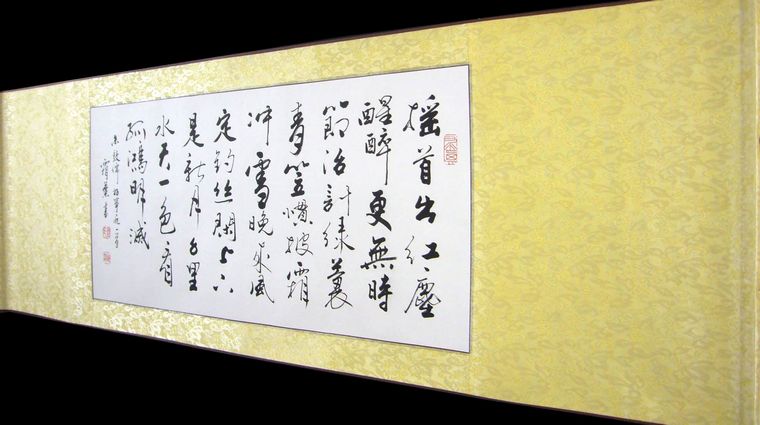 摇首出红塵
醒醉更無時
節活計绿蓑
青笠惯披霜
冲雪晚來風
定钓丝閑上下
是新月千里
水天一色看
孤鴻明滅
朱敦儒 好事近
書